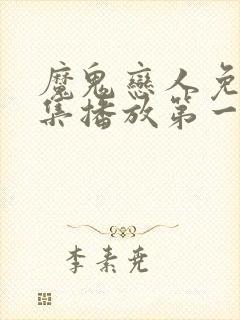 魔鬼戀人免
集播放第一
李素尭